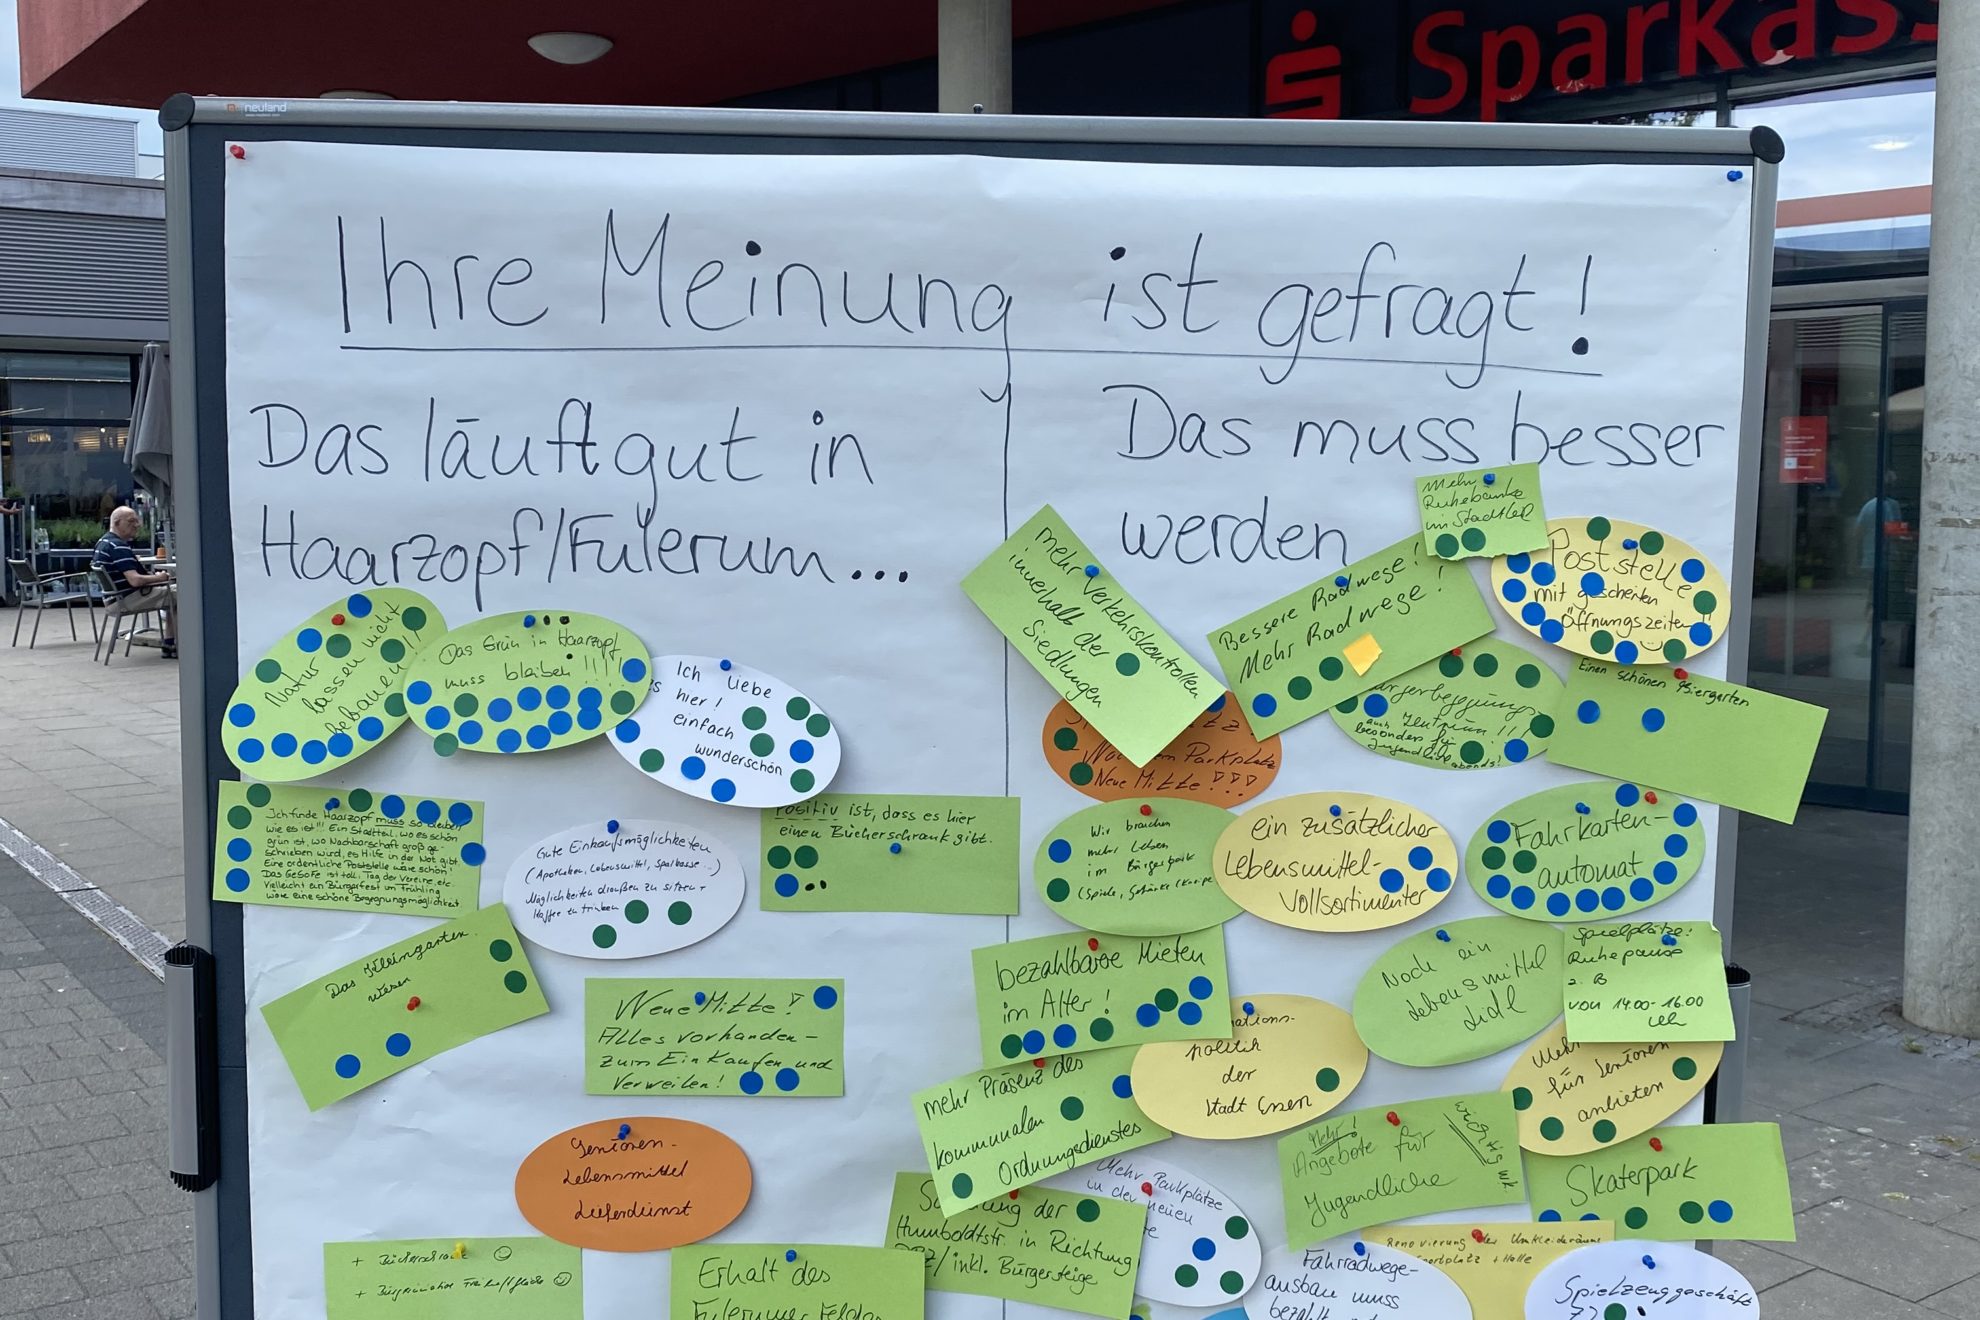 neuland
Sparkass
Ihre Meinung ist gefragt!
Das läuft gut in
Haarzopf/Fulerum...
Natur
lassen nicht
bebauen!!
Das Grün in Haarzopf
muss bleiben!!!!!
Ich liebe
es hier!
einfach
wunderschön
Ich finde Haarzopf muss so bleiben
wie es ist!!! Ein Stadtteil, wo es schön
grün ist, wo Nachbarschaft groß ge-
schrieben wird, es Hilfe in der Not gibt.
Eine ordentliche Poststelle wäre schön!
Das GeSoFe ist toll. Tag der Vereine, etc.
Vielleicht ein Bürgerfest im Frühling
wäre eine schöne Begegnungsmöglichkeit
Gute Einkaufsmöglichkeiten
(Apotheken, Lebensmittel, Sparkasse...)
Möglichkeiten draußen zu sitzen +
Kaffee zu trinken
Positiv ist, dass es hier
einen Bücherschrank gibt.
Das Kleingarten
wesen
Neue Mitte!
Alles vorhanden –
zum Einkaufen und
Verweilen!
Senioren-
Lebensmittel
Lieferdienst
+ Bücherschrank
+
Erhalt des
Fulerumer Feldes
Das muss besser
werden
mehr Verkehrskontrollen
innerhalb der
Siedlungen
Bessere Radwege!
Mehr Radwege!
Mehr
Ruhebänke
im Stadtteil
Poststelle
mit gescheiten
Öffnungszeiten
Einen schönen Biergarten
Bürgerbegegnungs-
zentrum!!!
auch
besonders für
Jugendliche abends!
Parkplatz
Neue Mitte!!!
Wir brauchen
mehr Leben
im Bürgerpark
(Spiele, Getränke
ein zusätzlicher
Lebensmittel-
Vollsortimenter
Fahrkarten-
automat
bezahlbare Mieten
im Alter!
Noch ein
Lebensmittel
Lidl
Spielplätze:
Ruhepause
z.B
von 14.00-16.00
Uhr
ations-
politik
der
Stadt Essen
Mehr
für Senioren
anbieten
mehr Präsenz des
kommunalen
Ordnungsdienstes
Mehr!
Angebote für
Jugendliche
wichtig
Skaterpark
Mehr Parkplätze
in der neuen
ung der
Humboldtstr. in Richtung
/inkl. Bürgersteige
Renovierung der Umkleideräume
Sportplatz + Halle
Fahrradwege-
ausbau muss
bezahlt
Spielzeuggeschäft